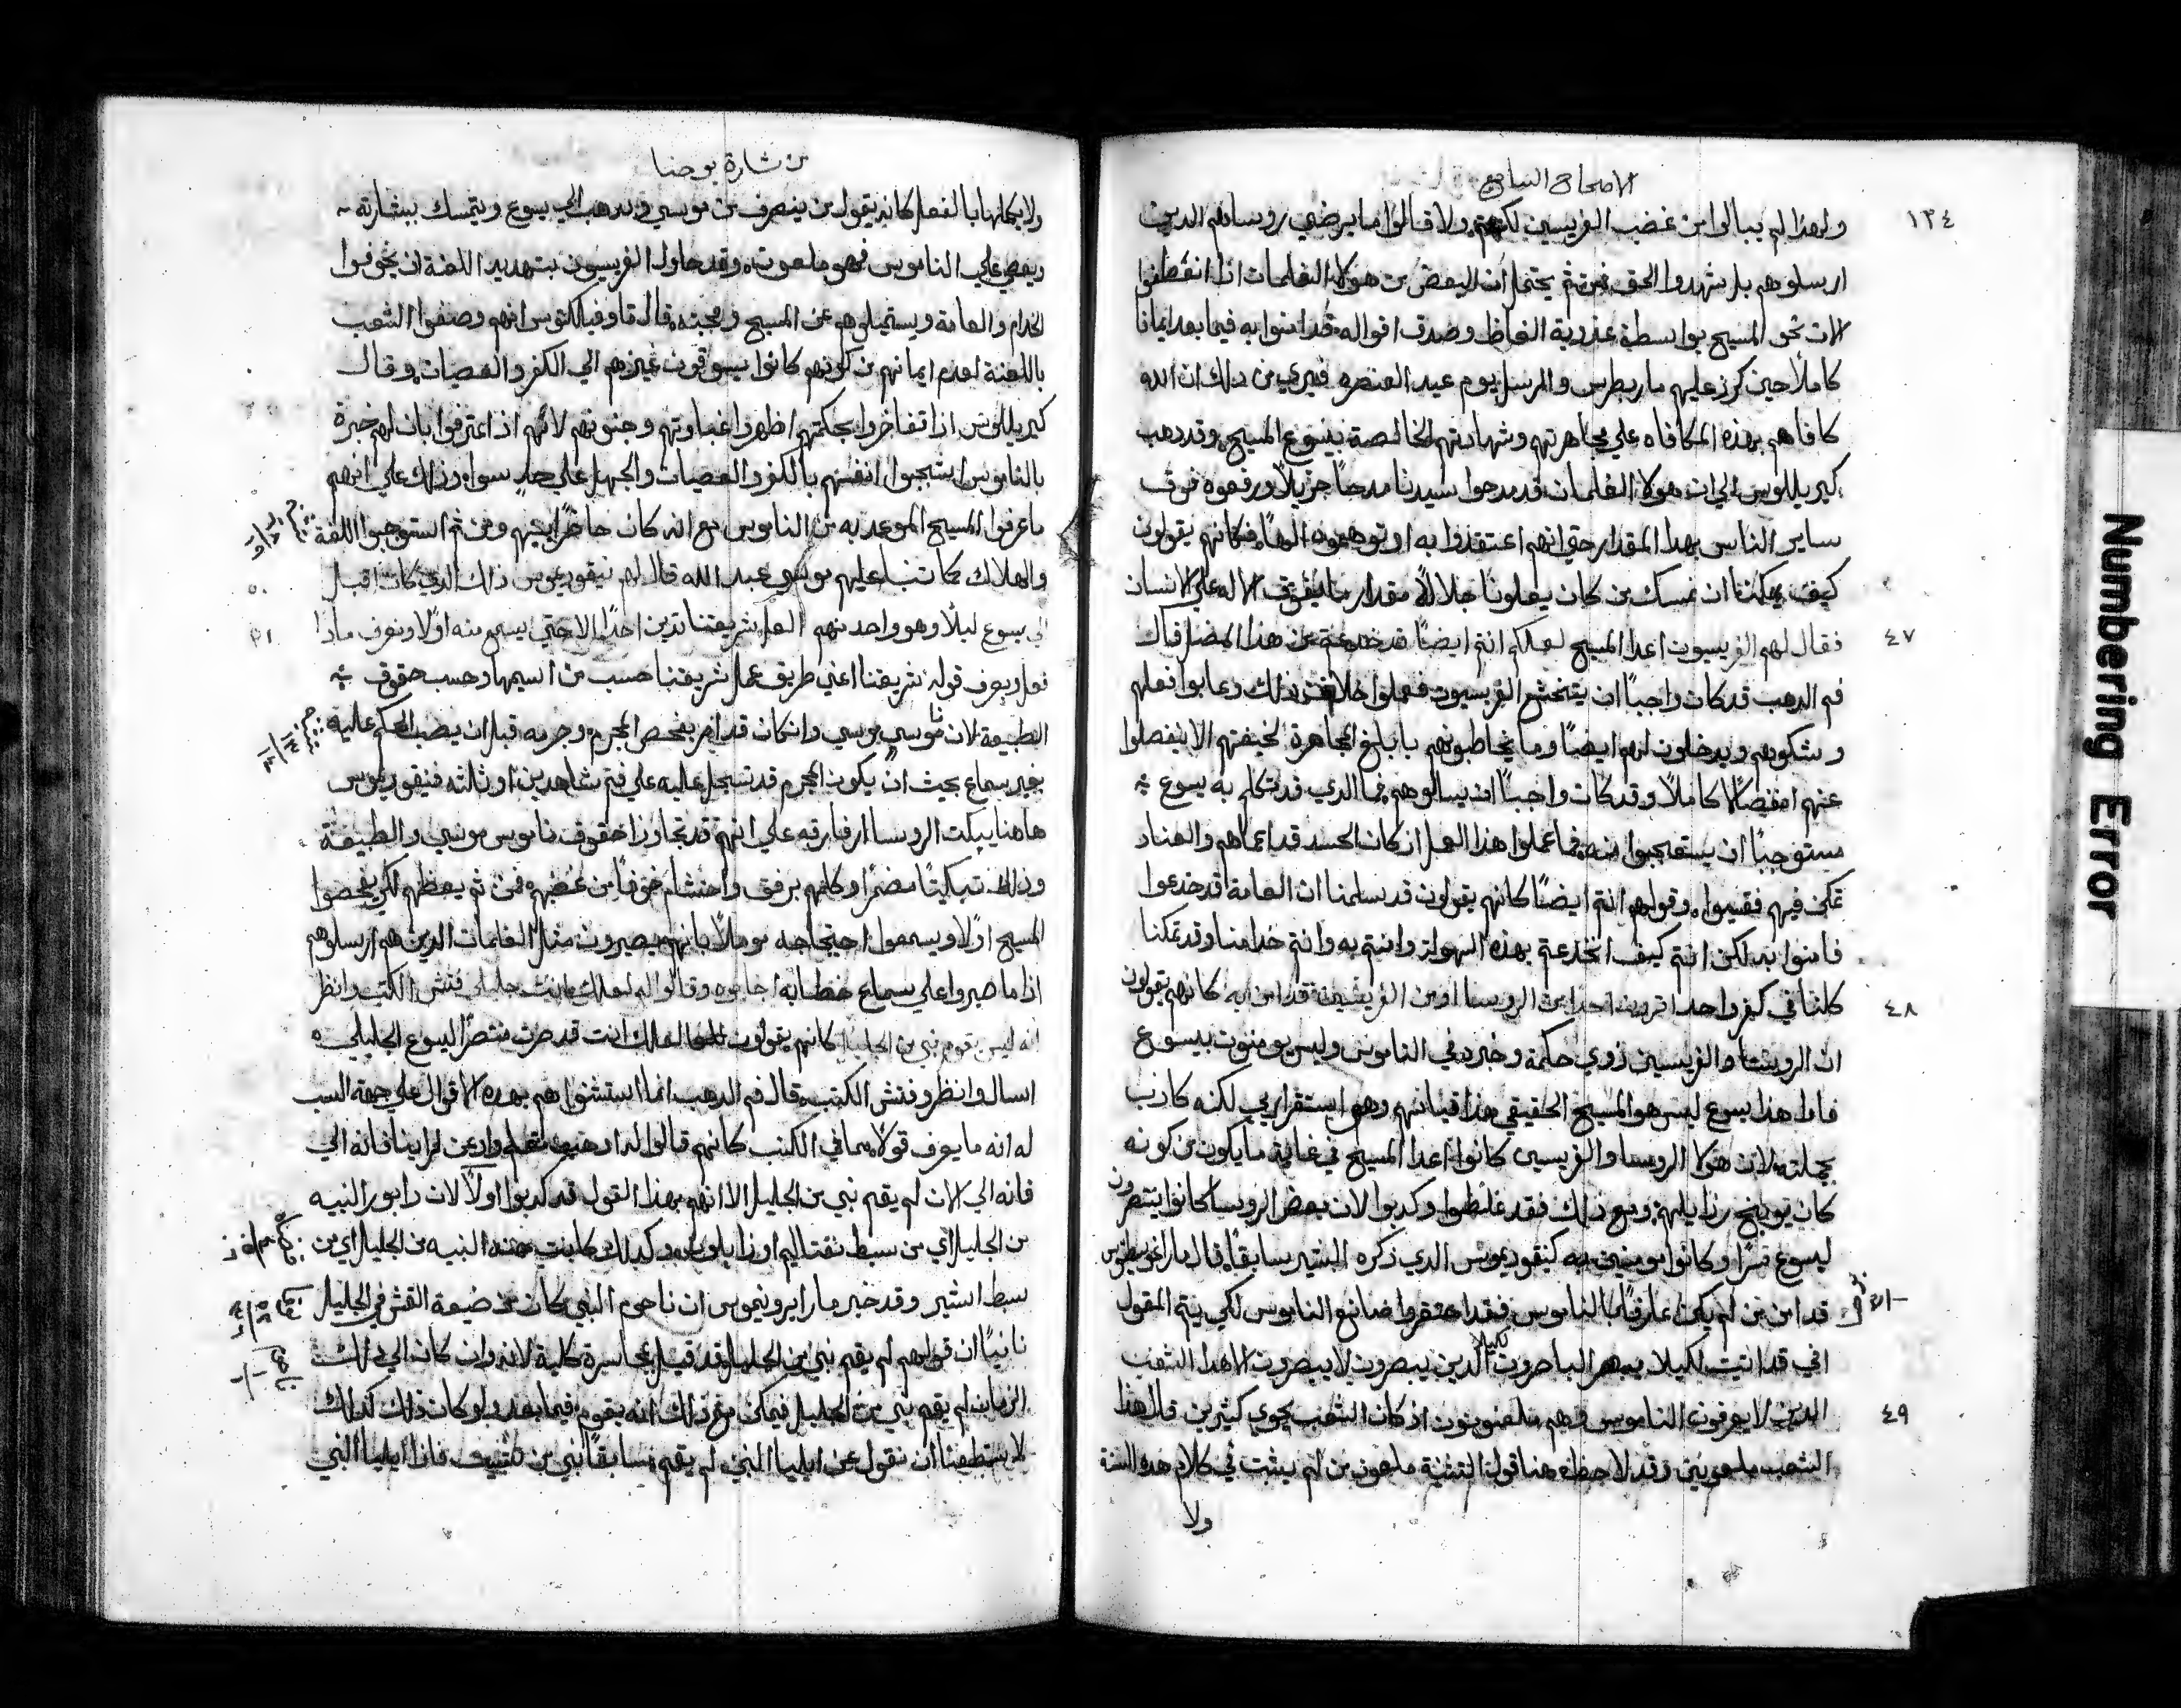 الاصحاح السابع
١٣٤
ولهذا لم يبالوا من غضب الفريسين لكنهم ولا قالوا ما يرضي روساهم الدين
ارسلوهم بل شهدوا الحق فمن ثم يحتمل ان البعض من هولا الغلمان اذا انعطفوا
الان نحو المسيح بواسطة عذوبة الفاظ وصدق اقواله قد امنوا به فيما بعد ايمانا
كاملا حين كرز عليهم مار بطرس والرسل يوم عيد العنصره فيري من ذلك ان الله
كافاهم بهذه المكافاه علي مجاهرتهم وشهادتهم الخالصة بيسوع المسيح وقد دهب
كيريللوس الي ان هولا الغلمان قد مدحوا سيدنا مدحا جزيلا ورفعوه فوق
ساير الناس بهدا المقدار حتي انهم اعتقدوا به او توهموه الها فكانهم يقولون
كيف يمكننا ان نمسك من كان يعلونا جلالا مقدار ما يفوق الاله علي الانسان
٤٧ فقال لهم الفريسيون اعدا المسيح لعلكم انتم ايضا قد خدعتم من هذا المضل قال
فم الدهب قد كان واجبا ان يتخشع الفريسيون فعملوا خلاف ذلك وعابوا فعلهم
وشكوهم ويدخلون لهم ايضا وما يخاطبونهم بابلغ المجاهرة لخيفتهم الا ينفصلوا
عنهم انفصالا كاملا وقد كان واجبا ان يسالوهم فما الدي قد تكلم به يسوع
مستوجبا ان يستعجبوا منه فما عملوا هذا العمل اذ كان الحسد قد اعماهم والعناد
تمكن فيهم فقيموا وقولهم انتم ايضا كانهم يقولون قد سلمنا ان العامة قد خدعوا
فامنوا به لكن انتم كيف انخدعتم بهذه السهولة وامنتم به وانتم خدامنا وقد تمكنا
٤٨ كلنا في كفر واحد اترون احدا من الروسا او من الفريسين قد امن به كانهم يقولون
ان الروسا والفريسين ذوي حكمة وخبره في الناموس وليس يومنون بيسوع
فاذا هذا يسوع ليس هو المسيح الحقيقي هذا قياسهم وهو استقرايي لكنه كاذب
بجملته لان هولا الروسا والفريسين كانوا اعدا المسيح في غاية ما يكون من كونه
كان يوبخ رذايلهم ومع ذلك فقد غلطوا وكدبوا لان بعض الروسا كانوا ينتصرون
ليسوع سرا وكانوا مومنين به كنيقوديموس الدي ذكره البشير سابقا قال مار اغوسطينوس
قد امن من لم يكن عارفا بالناموس فقد احتقروا صانع الناموس لكي يتم المقول
اني قد اتيت لكيلا يبصر الباصرون الدين يبصرون لا يبصرون الا هذا الشعب
٤٩ الدين لا يعرفون الناموس وهم ملعونون اذ كان الشعب يحوي كثيرين قال هذا
الشعب ملعونين وقد لاحظه هنا قول التثنية ملعون من لم يثبت في كلام هده السنة
ولا
من بشارة يوحنا
ولا يكملها بالفعل كانه يقول من ينصرف من موسي ويدهب الي يسوع ويتمسك ببشارته
ويعصي علي الناموس فهو ملعون وقد حاول الفريسيون بتهديد اللعنة ان يخوفوا
الخدام والعامة ويستميلوهم عن المسيح ومحبته قال تاوفيلكتوس انهم وصفوا الشعب
باللعنة لعدم ايمانهم من كونهم كانوا يسوقون غيرهم الي الكفر والعصيان وقال
كيريللوس اذا تفاخروا بحكمتهم اظهروا غباوتهم وجنونهم لانهم اذ اعترفوا بان لهم خبرة
بالناموس اشجبوا انفسهم بالكفر والعصيان والجهل علي حد سوا وذلك علي انهم
ما عرفوا المسيح الموعد به من الناموس مع انه كان حاضرا بينهم ومن ثم استوجبوا اللعنة
٥٠ والهلاك كما تنبا عليهم موسي عبد الله قال لهم نيقوديموس ذلك الدي كان اقبل
٥١ الي يسوع ليلا وهو واحد منهم العل شريعتنا تدين احدا الا حتي يسمع منه اولا ويعرف ماذا
فعل ويعرف قوله شريعتنا اعني طريق عمل شريعتنا حسب مراسيمها وحسب حقوق
الطبيعة لان ناموس موسي وان كان قد امر بفحص المجرم وجرمه قبل ان يصب الحكم عليه
بغير سماع بحيث ان يكون المجرم قد تسجل عليه علي فم شاهدين او ثلثه فنيقوديموس
هاهنا يبكت الروسا ارفاقه علي انهم قد تجاوزا حقوق ناموس موسي والطبيعة
وذلك تبكيتا مضمرا وكلمهم برفق واحتشام خوفا من غضبهم فمن ثم يعظهم لكي يفحصوا
المسيح اولا ويسمعوا احتجاجه موملا بانهم يصيرون مثل الغلمان الدين هم ارسلوهم
اذا ما صبروا علي سماع خطابه اجابوه وقالوا له لعلك انت جليلي فتش الكتب وانظر
انه ليس يقوم نبي من الجليل كانهم يقولون لعلك انت قد صرت منتصرا ليسوع الجليلي
اسال وانظر وفتش الكتب قال فم الدهب انما استشنوا هم بهده الاقوال علي جهة السب
له انه ما يعرف قولا مما في الكتب كانهم قالوا له اذهب تعلم
فانه الي الان لم يقم نبي من الجليل الا انهم بهذا القول قد كدبوا اولا لان دابورا النبيه
من الجليل اي من سبط نفتاليم او زابلون وكدلك كانت حنه النبيه من الجليل اي من
سبط اشير وقد خبر مار ايرونيموس ان ناحوم النبي كان من ضيعة القش في الجليل
ثانيا ان قولهم لم يقم نبي من الجليل قد قيل بمجاسرة كلية لانه وان كان الي ذلك
الزمان لم يقم نبي من الجليل فيمكن مع ذلك انه يقوم فيما بعد ولو كان ذلك كذلك
لاستطعنا ان نقول عن ايليا النبي لم يقم سابقا نبي من تثبيت فاذا ايليا النبي